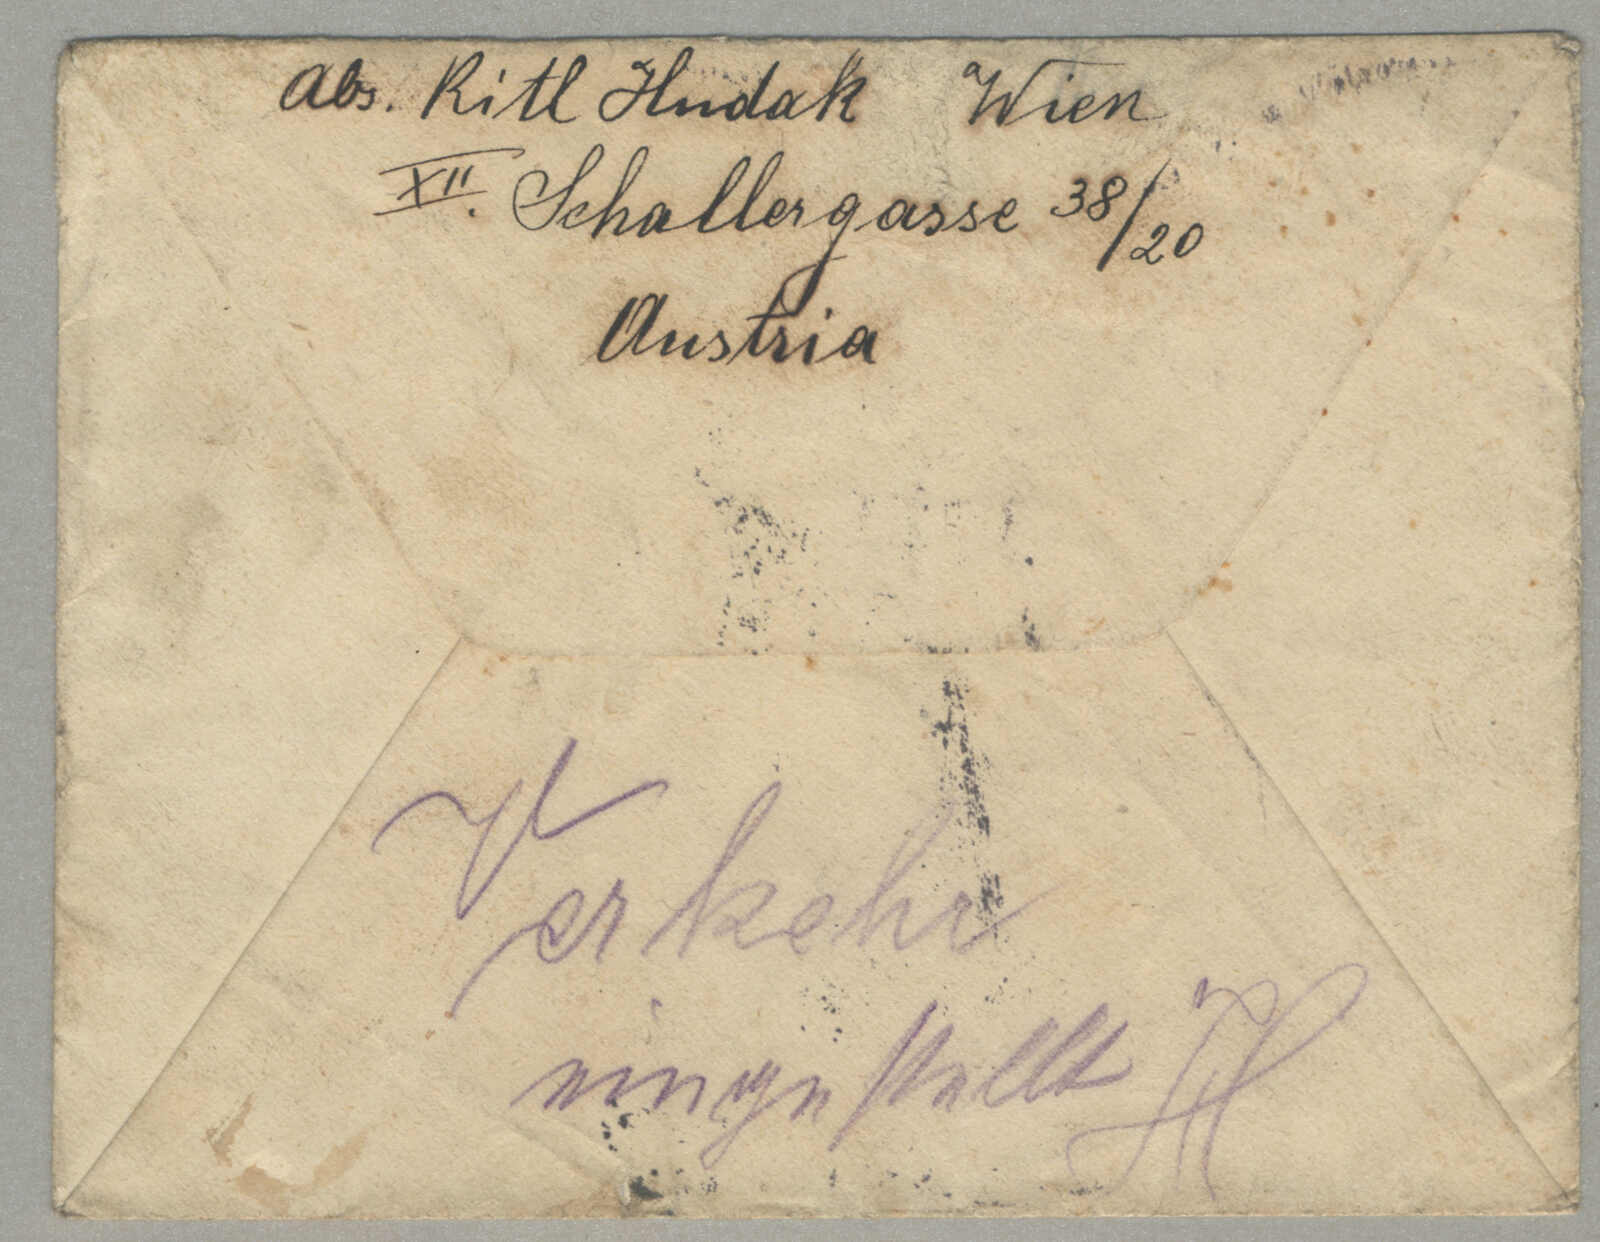 Abs. Ritl Hudak Wien
XII. Schallergasse 38/20
Austria
Verkehr
eingestellt